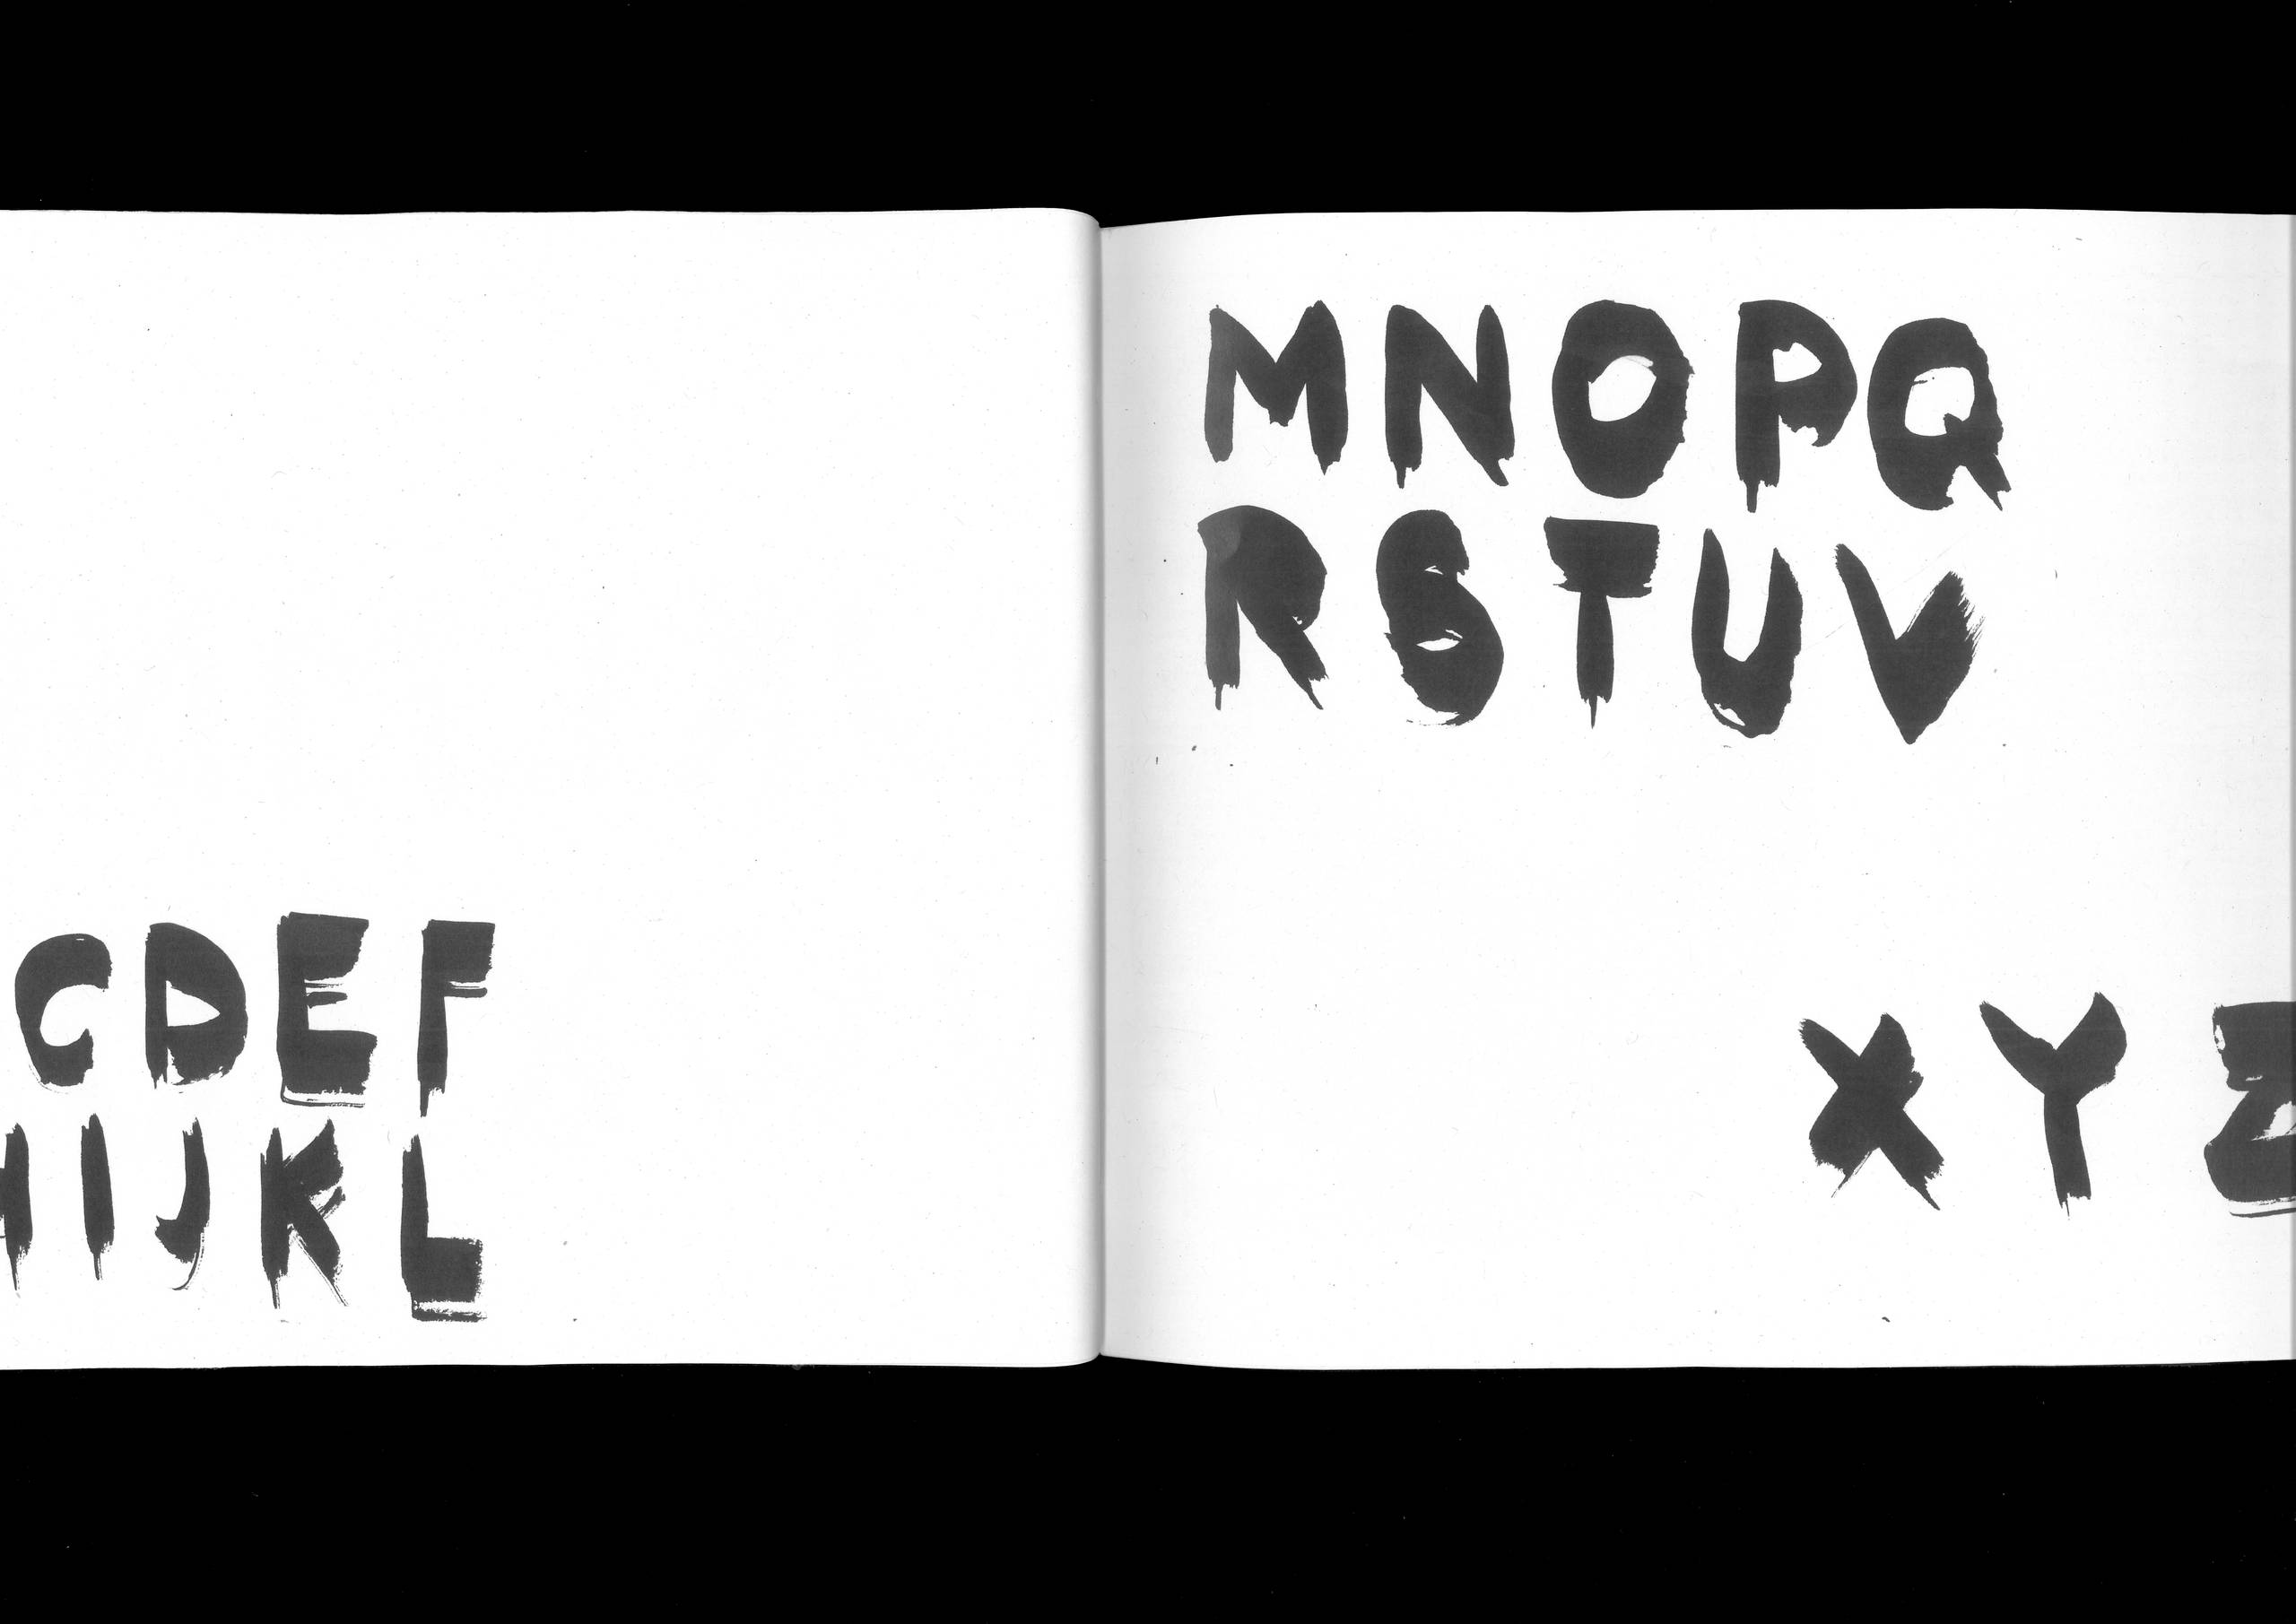 CDEF
HIJKL
MNOPQ
RSTUV
XYZ